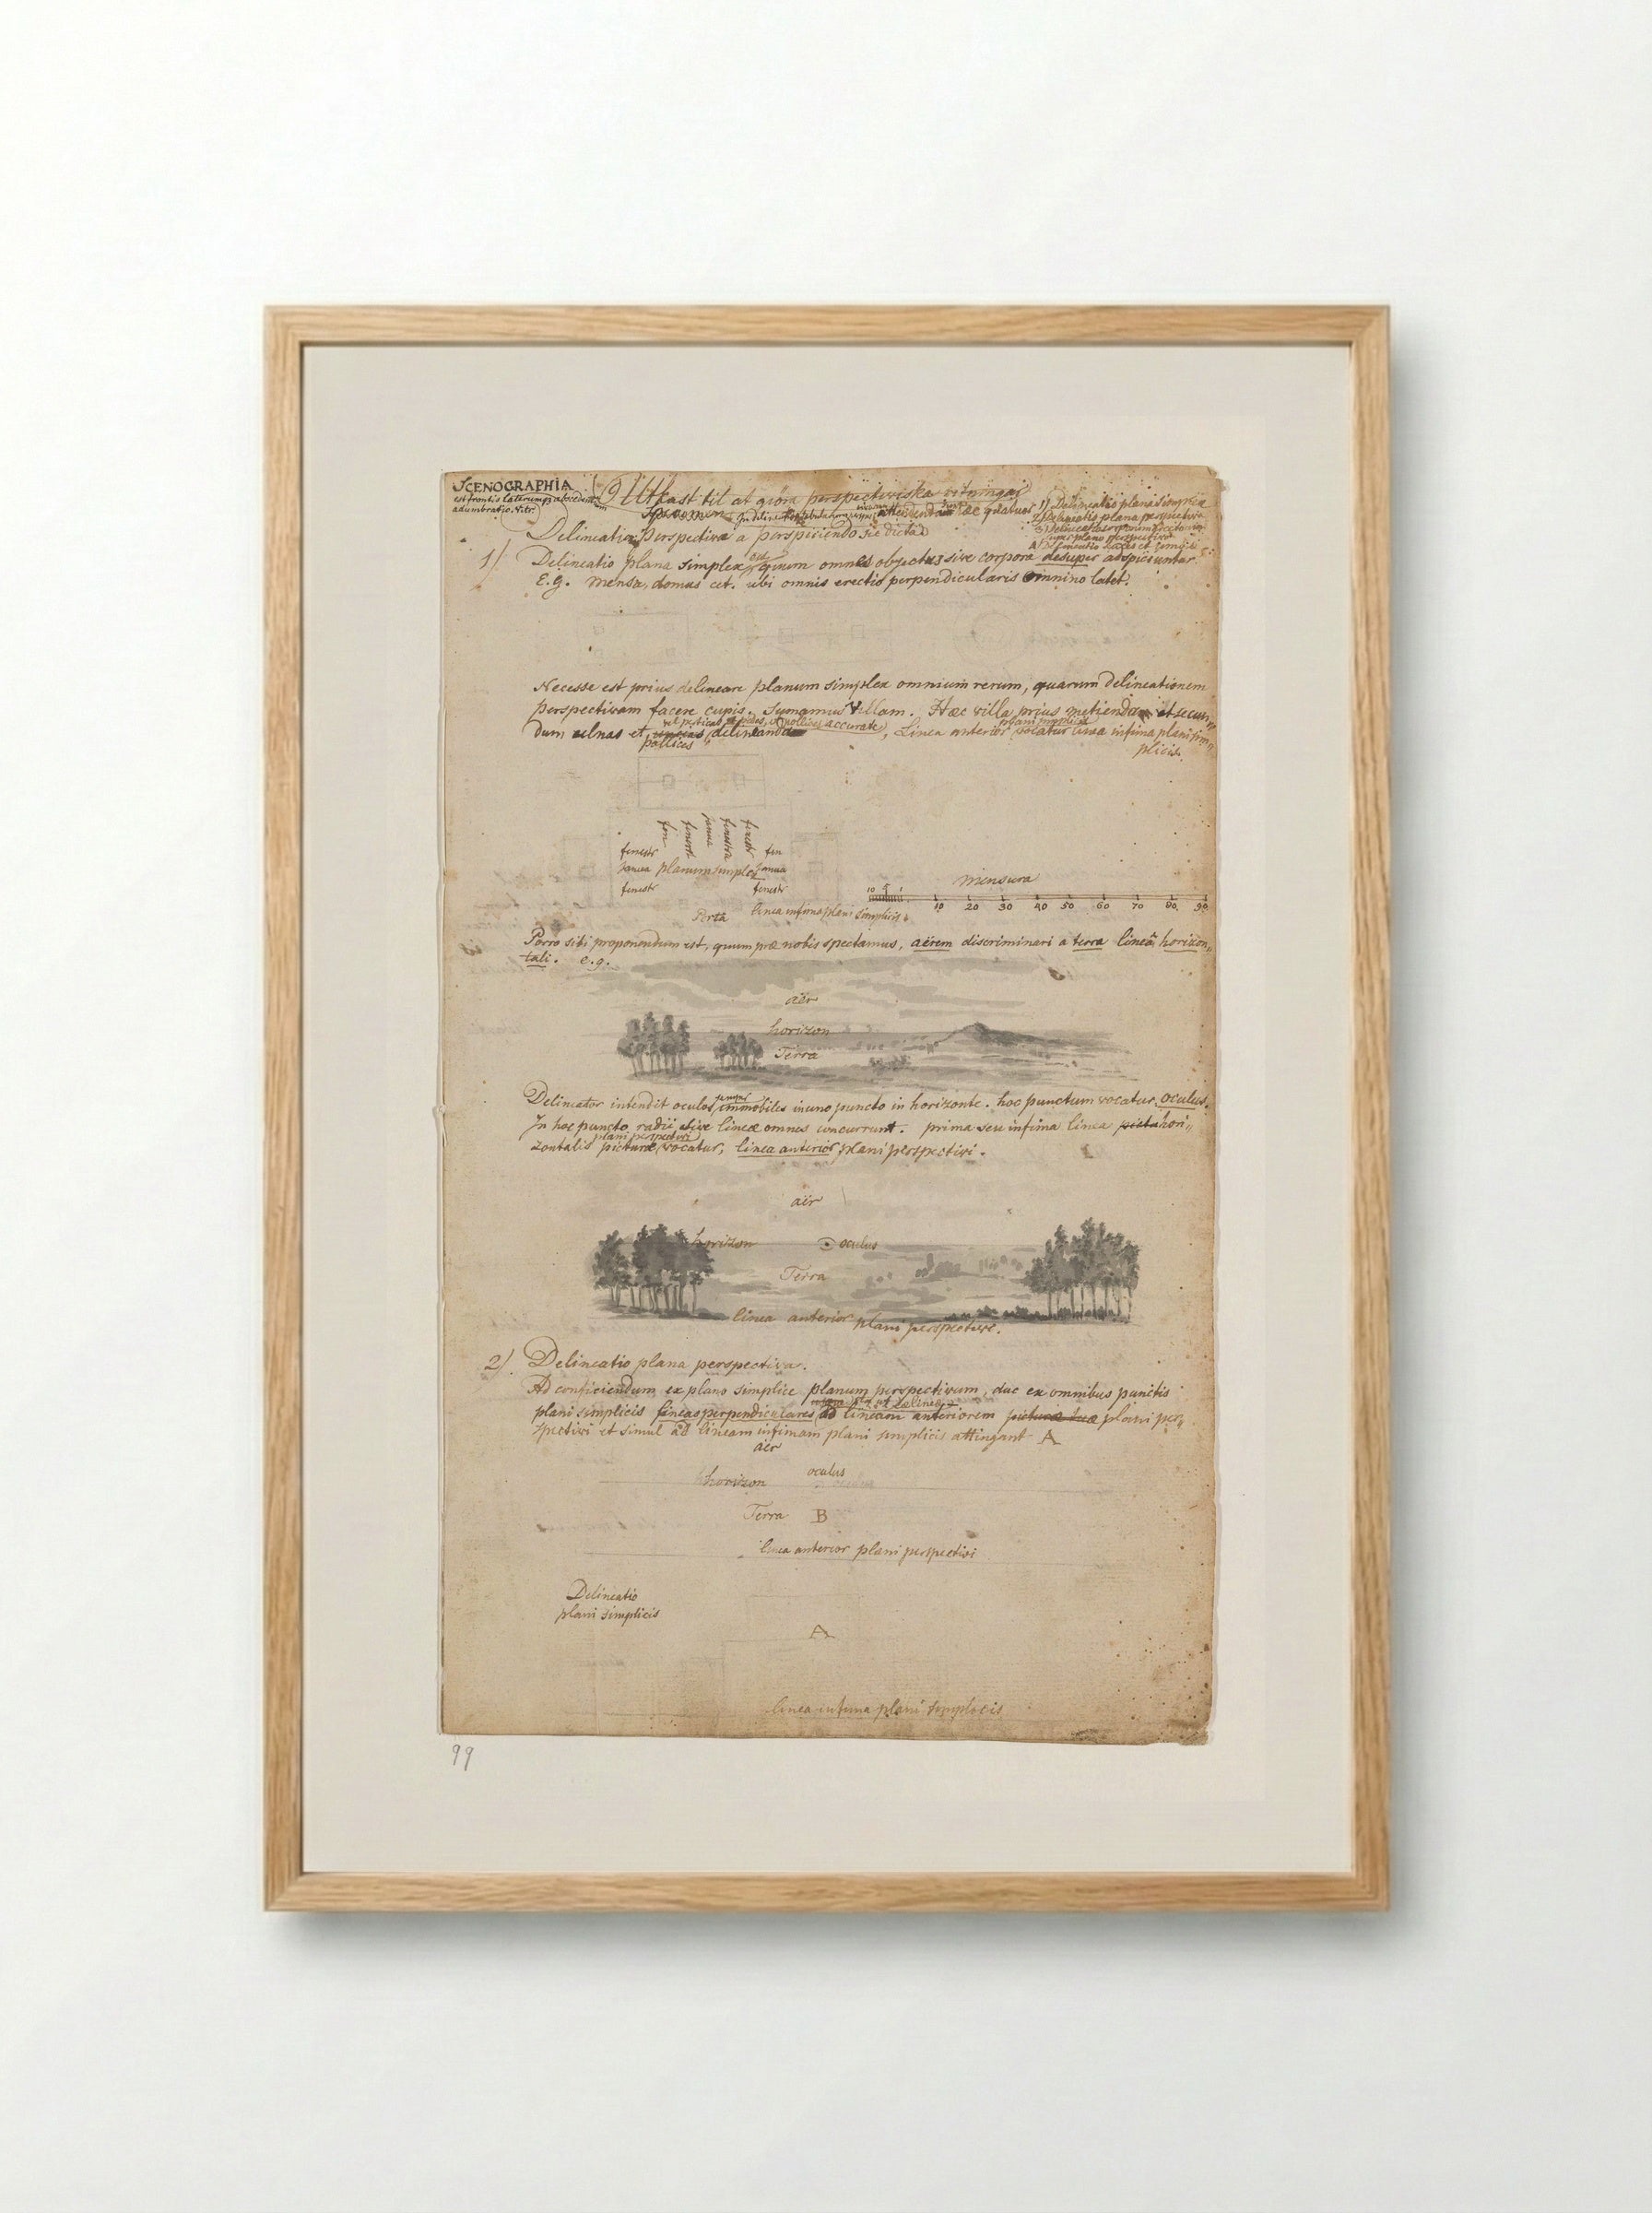 SCENOGRAPHIA
est frontis laterumqz abscedentium
adumbratio. Vitr.
Utkast til at giöra perspectiviska ritningar
Specimen In delin. attendendum hæc quatuor
1) Delineatio plana simplex
2) Delineatio plana perspectiva
3) Delineatio
super plano perspectivo
4) Delineatio lucis et umbræ
Delineatio perspectiva a perspiciendo sic dicta
1) Delineatio plana simplex est quum omnes objectus sive corpora desuper adspiciuntur
E.g. mensa, domus cet. ubi omnis erectio perpendicularis omnino latet.
Necesse est prius delineare planum simplex omnium rerum, quarum delineationem
perspectivam facere cupis. Sumamus Villam. Hæc villa prius metienda et secun„
vel perticas et pedes, et pollices accurate plani simplicis
dum ulnas et uncias delineanda, Linea anterior vocatur linea infima plani sim„
pollices
plicis.
fen fenestr janua fenestra fenestr
fenestr fen
janua planum simplex janua
fenestr fenestr
mensura
10 5 1 10 20 30 40 50 60 70 80 90
Porta linea infima plani simplicis
Porro sibi proponendum est, quum præ nobis spectamus, aërem discriminari a terra lineâ horizon„
tali. e.g.
aër
horizon
Terra
Delineator intendit oculos semper immobiles in uno puncto in horizonte. hoc punctum vocatur oculus.
In hoc puncto radii sive lineæ omnes concurrunt. prima seu infima linea picta hori„
plani perspectivi
zontalis picturæ vocatur, linea anterior plani perspectivi.
aër
horizon oculus
Terra
linea anterior plani perspectivi.
2) Delineatio plana perspectiva.
Ad conficiendum ex plano simplice planum perspectivum, duc ex omnibus punctis
plani simplicis lineas perpendiculares ad lineam anteriorem picturæ tuæ plani per„
spectivi et simul ad lineam infimam plani simplicis attingant A
aër
horizon oculus
Terra B
linea anterior plani perspectivi
Delineatio
plani simplicis
A
linea infima plani simplicis
99